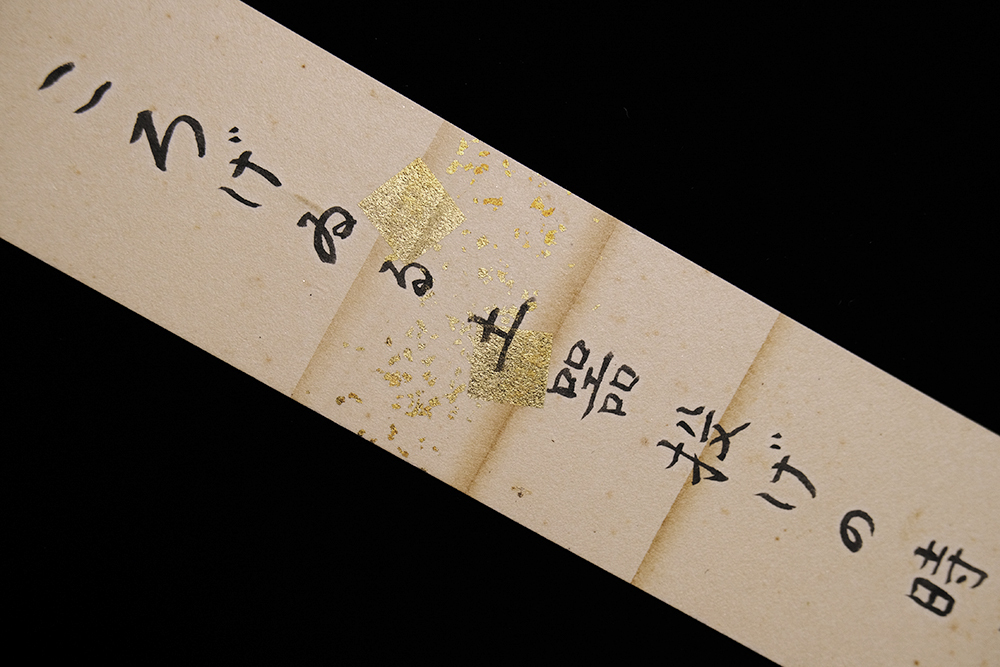 ころげゐる土器投げの時